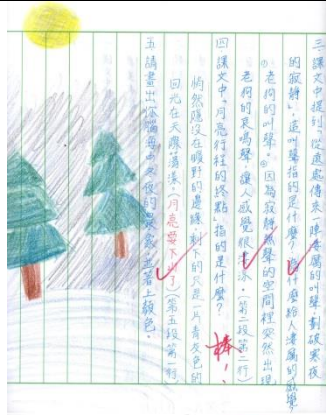 三、課文中提到「從遠處傳來一陣淒厲的叫聲劃破寒夜
的寂靜」,這叫聲指的是什麼?為什麼給人淒厲的感覺
①老狗的叫聲。②因為寂靜無聲的空間裡突然出現
老狗的哀鳴聲,讓人感覺很淒涼。(第二段第二行)
四、課文中「月亮行程的終點」指的是什麼?
悄然隱沒在曠野的邊緣,剩下的只是一片青灰色的
回光在天際蕩漾。(月亮要下山了)(第五段第一行)
棒!
五、請畫出你腦海中冬夜的景致,並著上顏色。